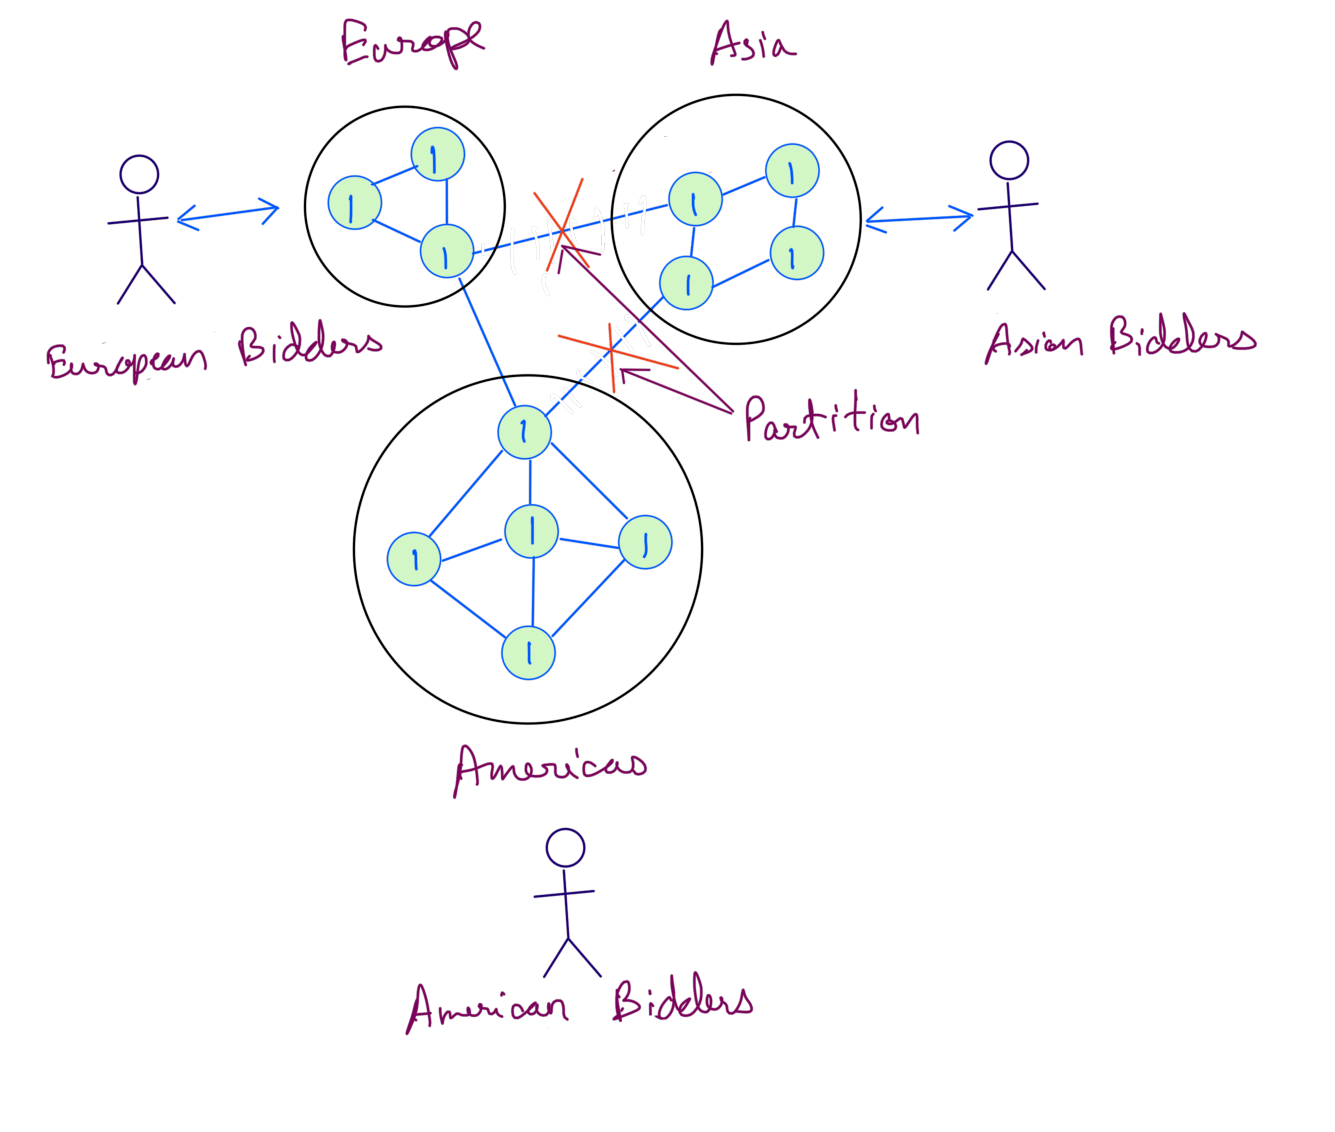 Europe
Asia
1
1
1
1
1
1
1
European Bidders
Asian Bidders
Partition
1
1
1
1
1
Americas
American Bidders